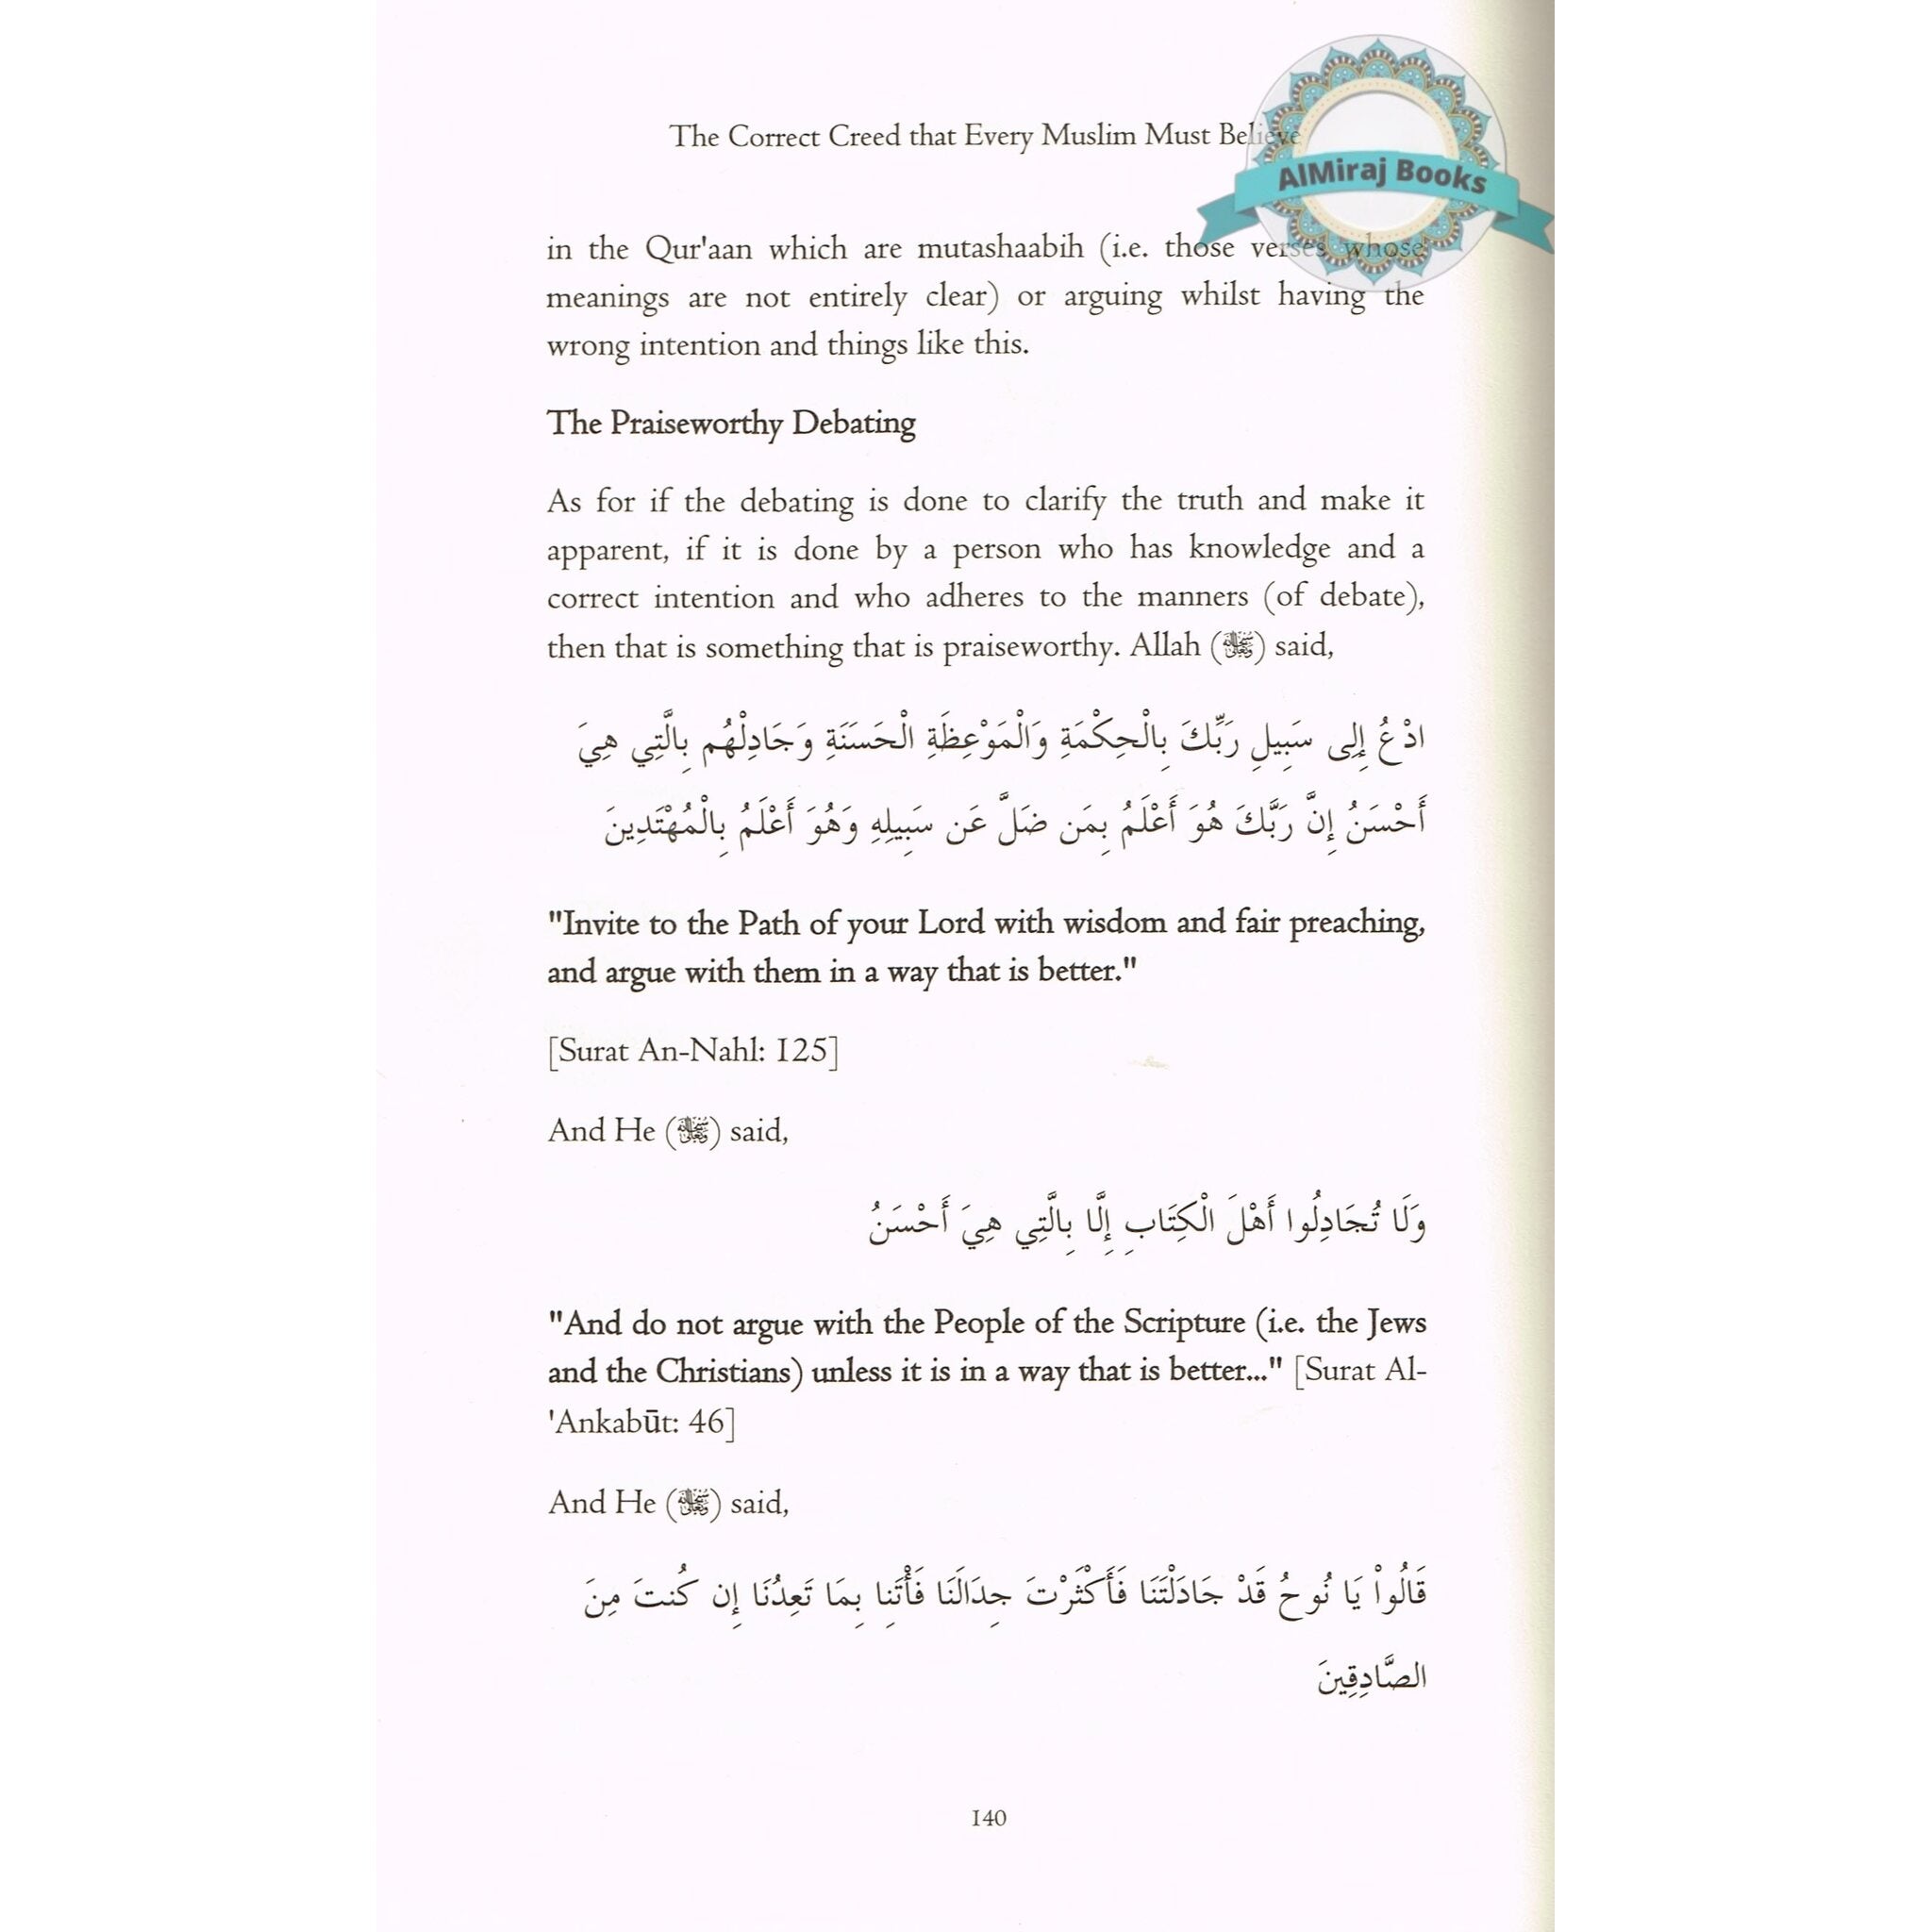 The Correct Creed that Every Muslim Must Believe
AlMiraj Books
in the Qur'aan which are mutashaabih (i.e. those verses whose
meanings are not entirely clear) or arguing whilst having the
wrong intention and things like this.
The Praiseworthy Debating
As for if the debating is done to clarify the truth and make it
apparent, if it is done by a person who has knowledge and a
correct intention and who adheres to the manners (of debate),
then that is something that is praiseworthy. Allah (ﷻ) said,
ادْعُ إِلِى سَبِيلِ رَبِّكَ بِالْحِكْمَةِ وَالْمَوْعِظَةِ الْحَسَنَةِ وَجَادِلْهُم بِالَّتِي هِيَ
أَحْسَنُ إِنَّ رَبَّكَ هُوَ أَعْلَمُ بِمَن ضَلَّ عَن سَبِيلِهِ وَهُوَ أَعْلَمُ بِالْمُهْتَدِينَ
"Invite to the Path of your Lord with wisdom and fair preaching,
and argue with them in a way that is better."
[Surat An-Nahl: 125]
And He (ﷻ) said,
وَلَا تُجَادِلُوا أَهْلَ الْكِتَابِ إِلَّا بِالَّتِي هِيَ أَحْسَنُ
"And do not argue with the People of the Scripture (i.e. the Jews
and the Christians) unless it is in a way that is better..." [Surat Al-
'Ankabūt: 46]
And He (ﷻ) said,
قَالُواْ يَا نُوحُ قَدْ جَادَلْتَنَا فَأَكْثَرْتَ جِدَالَنَا فَأْتَنِا بِمَا تَعِدُنَا إِن كُنتَ مِنَ
الصَّادِقِينَ
140